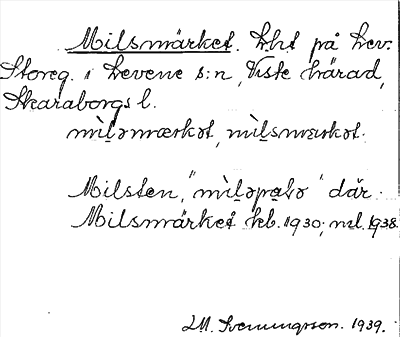 Milsmärket. Lht på Lev.
Storeg. i Levene s:n, Viste härad,
Skaraborgs l.
mìləmærkət, mìlsmærkət.
Milsten, "mìləpalə" där.
Milsmärket kb. 1930; ml. 1938.
I.M. Svenningsson. 1939.